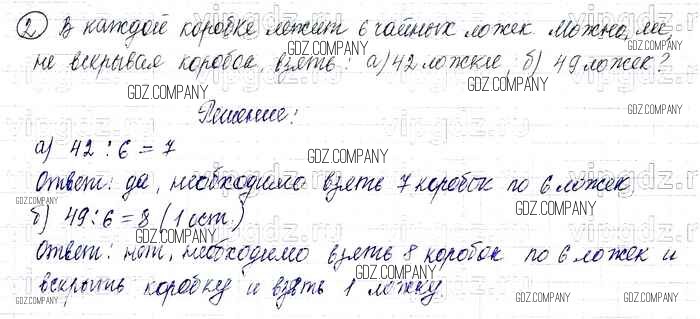 2 В каждой коробке лежит 6 чайных ложек. Можно ли,
не вскрывая коробок, взять: а) 42 ложки, б) 49 ложек?
GDZ.COMPANY
GDZ.COMPANY
GDZ.COMPANY
GDZ.COMPANY
Решение:
vipgdz.ru
а) 42 : 6 = 7
GDZ.COMPANY
Ответ: да, необходимо взять 7 коробок по 6 ложек
GDZ.COMPANY
GDZ.COMPANY
б) 49 : 6 = 8 (1 ост)
GDZ.COMPANY
Ответ: нет, необходимо взять 8 коробок по 6 ложек и
GDZ.COMPANY
GDZ.COMPANY
вскрыть коробку и взять 1 ложку.
GDZ.COMPANY
GDZ.COMPANY